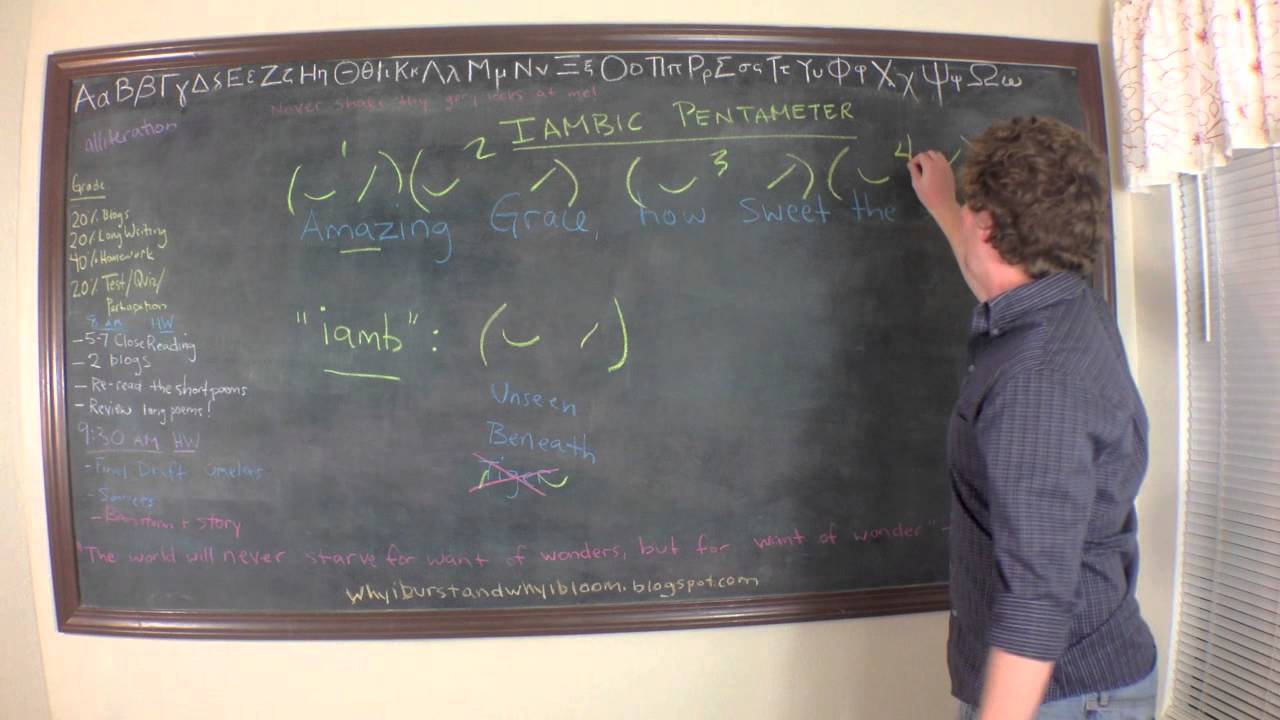 Αα Ββ Γγ Δδ Εε Ζζ Ηη Θθ Ιι Κκ Λλ Μμ Νν Ξξ Οο Ππ Ρρ Σσς Ττ Υυ Φφ Χχ Ψψ Ωω
Never shake thy gory locks at me!
alliteration
IAMBIC PENTAMETER
1 2 3 4
(⏑ /) (⏑ /) (⏑ /) (⏑
Amazing Grace, how sweet the
"iamb": (⏑ /)
Unseen
Beneath
Tiger
Grade
20% Blogs
20% Long Writing
40% Homework
20% Test/Quiz/
Participation
8 am HW
- 5-7 Close Reading
- 2 blogs
- Re-read the short poems
- Review long poems!
9:30 AM HW
- Final Draft
- Sources
- Brainstorm + story
"The world will never starve for want of wonders, but for want of wonder" -
whyiburstandwhyibloom.blogspot.com